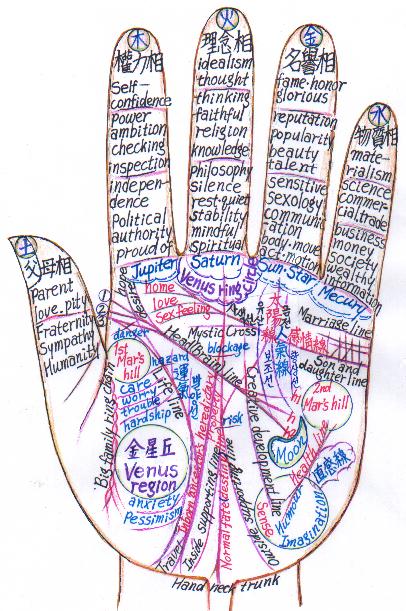 木
權力相
Self-
confidence
power
ambition
checking
inspection
indepen-
dence
political
authority
proud of
火
理念相
idealism
thought
thinking
faithful
religion
knowledge
philosophy
silence
rest.quiet
stability
mindful
Spiritual
金
名譽相
fame.honor
glorious
reputation
popularity
beauty
talent
sensitive
Sexology
communic
ration
body.move
ac.motion
水
物質相
mate-
rialism
science
commer-
cial.trade
business
money
society
wealthy
information
土
父母相
Parent
love.pity
Fraternity
Sympathy
Humanity
Jupiter
Saturn
Venus ring
Sun-Star
Mecury
desire
hope
home
love
Sex feeling
Mystic Cross
blockaye
Marriage line
Son and
daughter line
太陽線
感情線
danger
1st
Mar's
hill
hazard
care
worry
trouble
hardship
Life line
Head Brain line
Big family ring chain
金星丘
Venus
region
anxiety
Pessimism
risk
Creative development line
2nd
Mar's hill
Moon
Health line
直感線
Sense
Humour
Imagination
Travel
Inside supporting line
Normal fate destiny line
Outside supporting line
Hand neck trunk